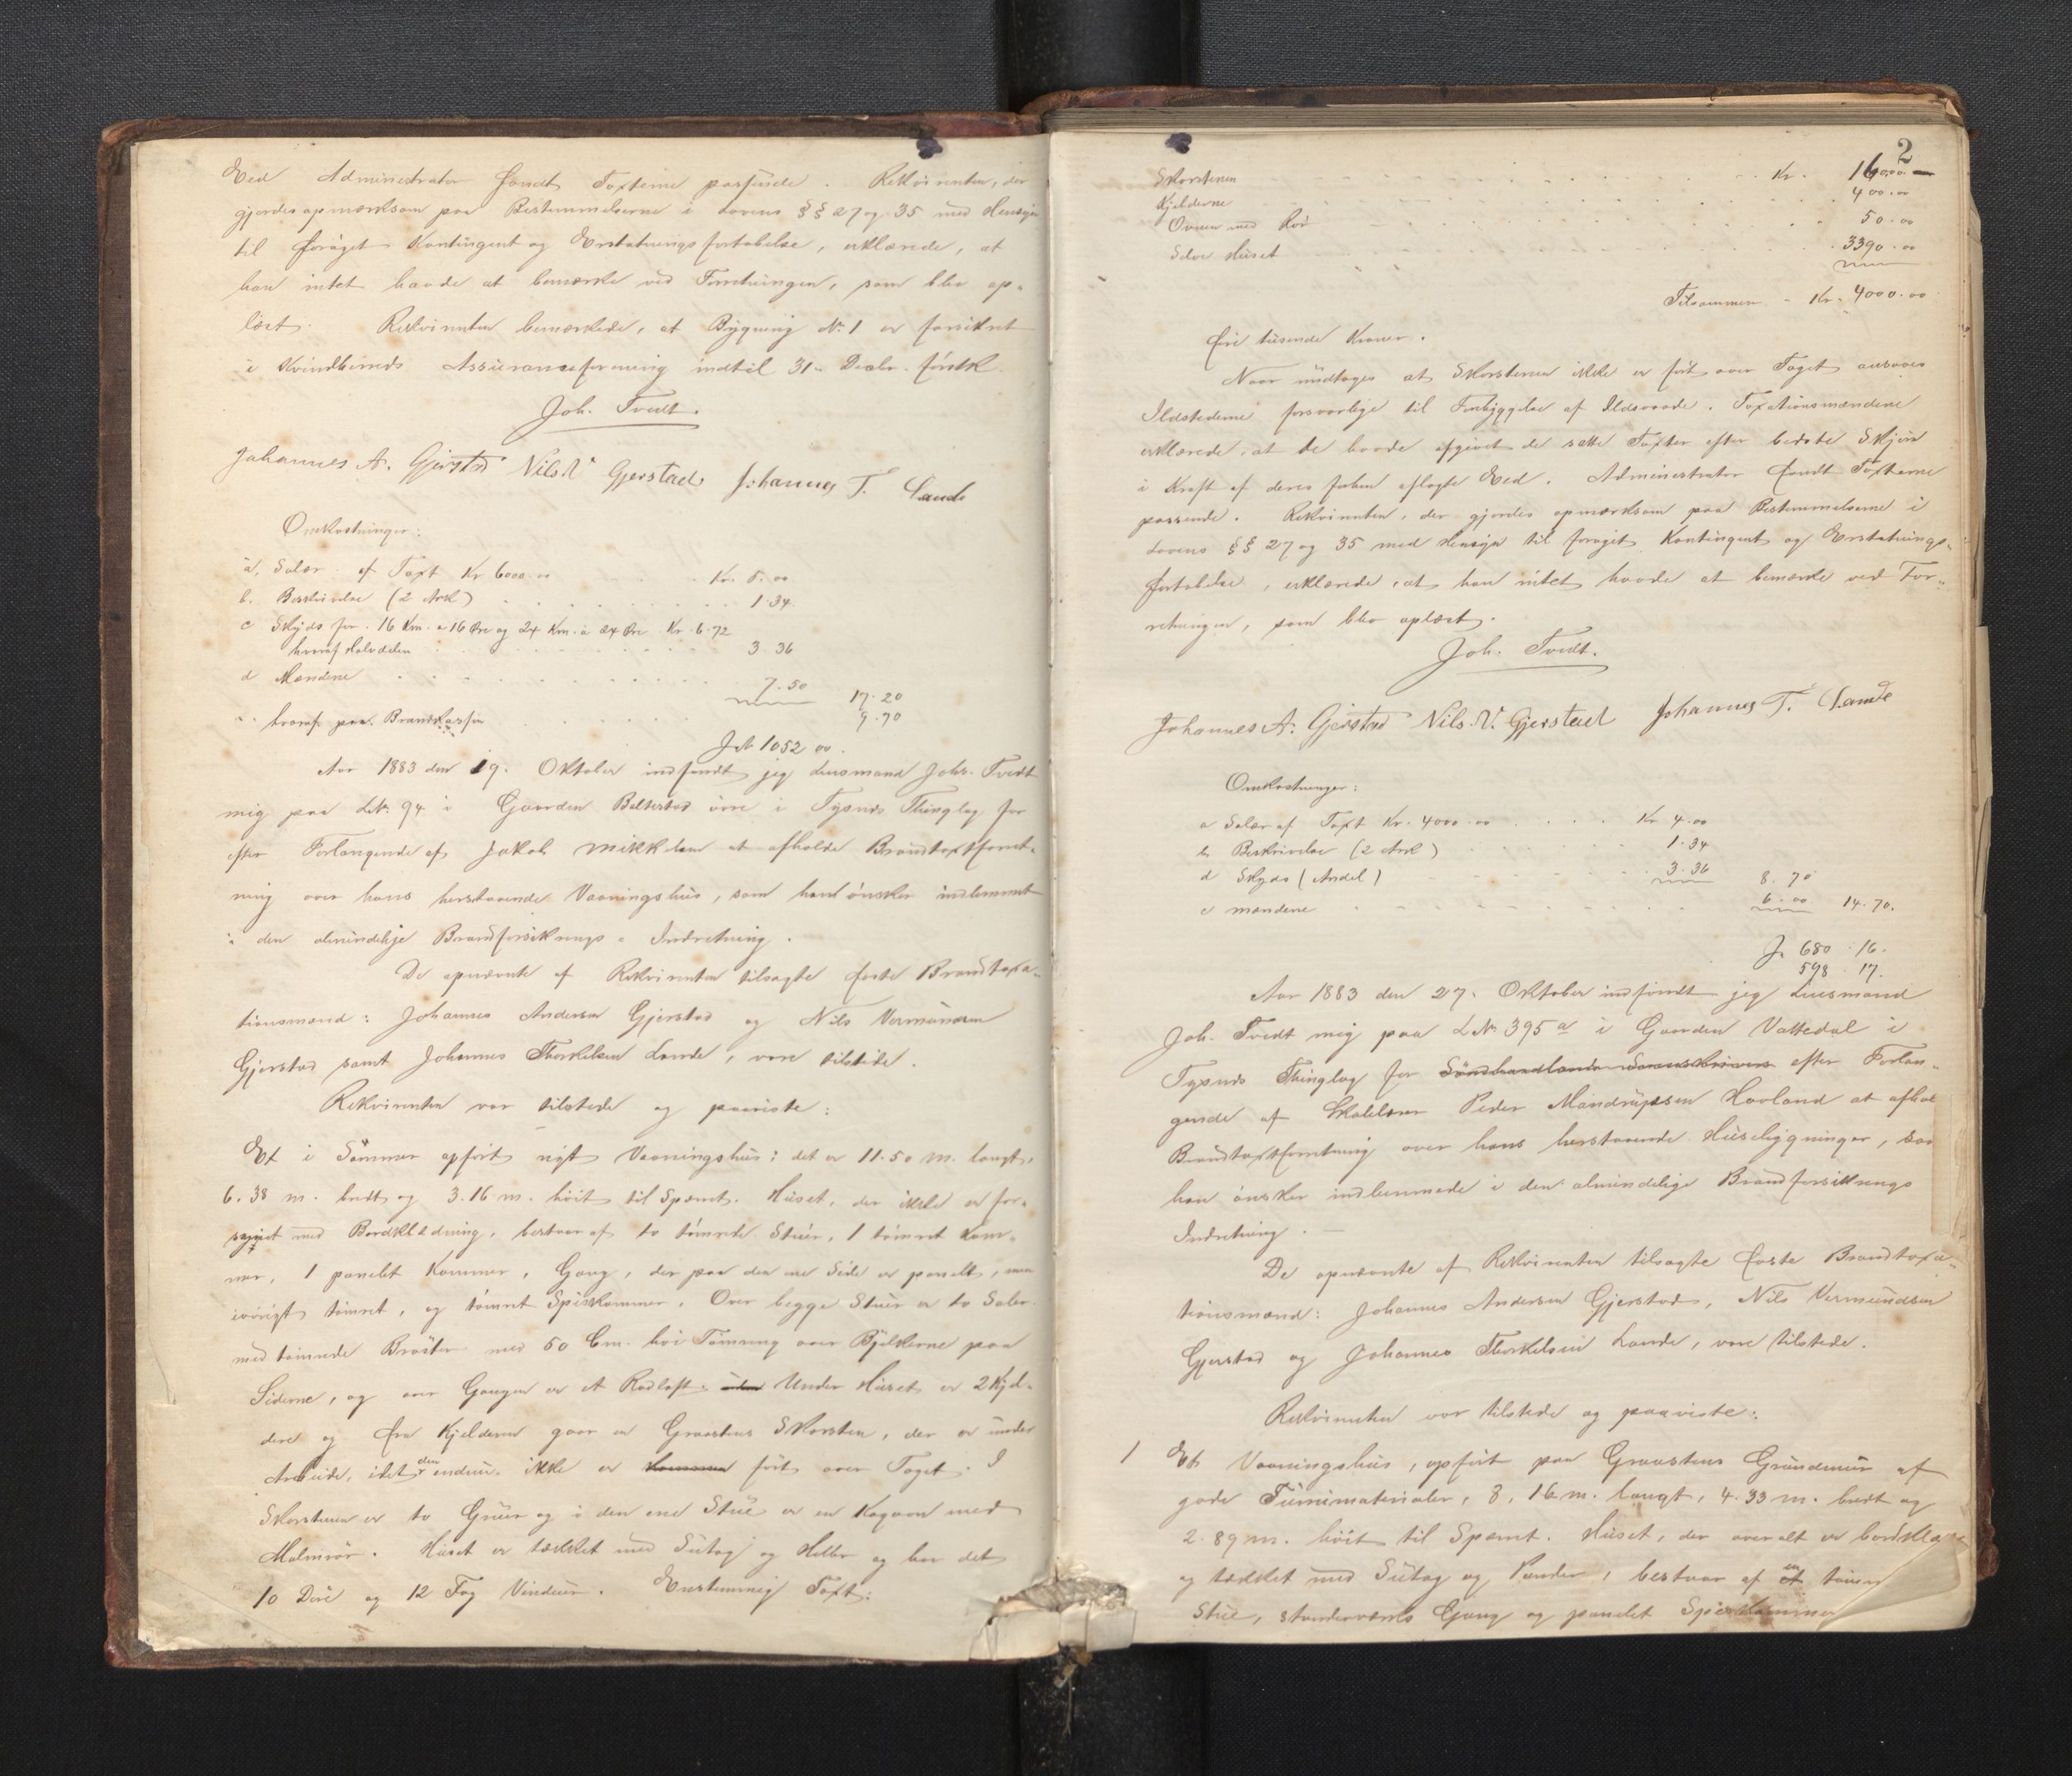 Ed. Administrator fandt Taxterne passende. Rekvirenten, der
gjordes opmærksom paa Bestemmelserne i Lovens §§ 27 og 35 med Hensyn
til forøget Kontingent og Erstatnings fortabelse, erklærede, at
han intet havde at bemærke ved Forretningen, som blev op-
læst. Rekvirenten bemærkede, at Bygning No 1 er forsikret
i Kvindherreds Assuranceforening indtil 31te Decbr. førstk.
Joh. Tvedt.
Johannes A. Gjerstad Nils V Gjerstad Johannes T. Lande
Omkostninger:
a. Salær af Taxt Kr 6000.00 Kr. 5.00
b. Beskrivelse (2 Ark) 1.34
c Skyds for 16 Km. a 16 Øre og 24 Km. a 24 Øre Kr. 6.72
hvoraf Halvdelen 3 36
d Mændene 7.50
17.20
hvoraf paa Brandkassen 9.70
Jrb 1052 00.
Aar 1883 den 19. Oktober indfandt jeg Lensmand Johs. Tvedt
mig paa L.Nr. 94 i Gaarden Beltestad øvre i Tysnes Thinglag for
efter Forlangende af Jakob Mikkelsen at afholde Brandtaxtforret-
ning over hans herstaaende Vaaningshus, som han ønsker indlemmet
i den almindelige Brandforsikrings-Indretning.
De opnævnte af Rekvirenten tilsagte faste Brandtaxa-
tionsmænd: Johannes Andersen Gjerstad og Nils Vermundsen
Gjerstad samt Johannes Thorkelsen Lande, vare tilstede.
Rekvirenten var tilstede og paaviste:
Et i Sommer opført nyt Vaaningshus; det er 11.50 m. langt,
6.38 m. bredt og 3.16 m. høit til Spærret. Huset, der ikke er for-
synet med Bordklædning, bestaar af to tømrede Stuer, 1 tømret Kam-
mer, 1 panelet Kammer, Gang, der paa den ene Side er panelt, men
iøvrigt tømret, og tømret Spiskammer. Over begge Stuer er to Saler
med tømrede Brøster med 50 Cm. høi Tømring over Bjelkerne paa
Siderne, og over Gangen er et Rodloft. Under Huset er 2 Kjel-
dere og fra Kjelderen gaar en Graastens Skorsten, der er under
Arbeide, idet den endnu ikke er ført over Taget. I
Skorstenen er to Gruer og i den ene Stue er en Kogeovn med
Malmrør. Huset er tækket med Sutag og Heller og har det
10 Døre og 12 Fag Vinduer. Enstemmig Taxt:
2
Skorstenen Kr. 160.00
Kjelderne 400.00
Ovnen med Rør 50.00
Selve Huset 3390.00
Tilsammen - Kr. 4000.00
fire tusende Kroner.
Naar undtages at Skorstenen ikke er ført over Taget ansaaes
Ildstederne forsvarlige til Forebyggelse af Ildsvaade. Taxationsmændene
erklærede, at de havde afgivet de satte Taxter efter bedste Skjøn
i Kraft af deres forhen aflagte Eed. Administrator fandt Taxterne
passende. Rekvirenten, der gjordes opmærksom paa Bestemmelserne i
Lovens §§ 27 og 35 med Hensyn til forøget Kontingent og Erstatnings-
fortabelse, erklærede, at han intet havde at bemærke ved For-
retningen, som blev oplæst.
Joh. Tvedt.
Johannes A. Gjerstad Nils. V. Gjerstad Johannes T. Lande
Omkostninger:
a Salær af Taxt Kr. 4000.00 Kr 4.00
b Beskrivelse (2 Ark) 1.34
d Skyds (Andel) 3.36 8.70
e mændene 6.00 14.70.
Jr 680 16.
598 17.
Aar 1883 den 27. Oktober indfandt jeg Lensmand
Joh. Tvedt mig paa L.No 395 a i Gaarden Vattedal i
Tysnes Thinglag for Søndhordlands Sorenskriveri efter Forlan-
gende af Skolelærer Peder Mandrupsen Hovland at afhol
Brandtaxtforretning over hans herstaaende Husebygninger, som
han ønsker indlemmede i den almindelige Brandforsikrings
Indretning.
De opnævnte af Rekvirenten tilsagte faste Brandtaxa-
tionsmænd: Johannes Andersen Gjerstad, Nils Vermundsen
Gjerstad og Johannes Thorkelsen Lande, vare tilstede.
Rekvirenten var tilstede og paaviste:
1 Et Vaaningshus, opført paa Graastens Grundmur af
gode Tømmermaterialer, 8,16 m. langt, 4.33 m. bredt og
2.89 m. høit til Spærret. Huset, der overalt er bordklæ
og tækket med Sutag og Pander, bestaar af en tømr
Stue, standerværks Gang og panelet Spiskammer